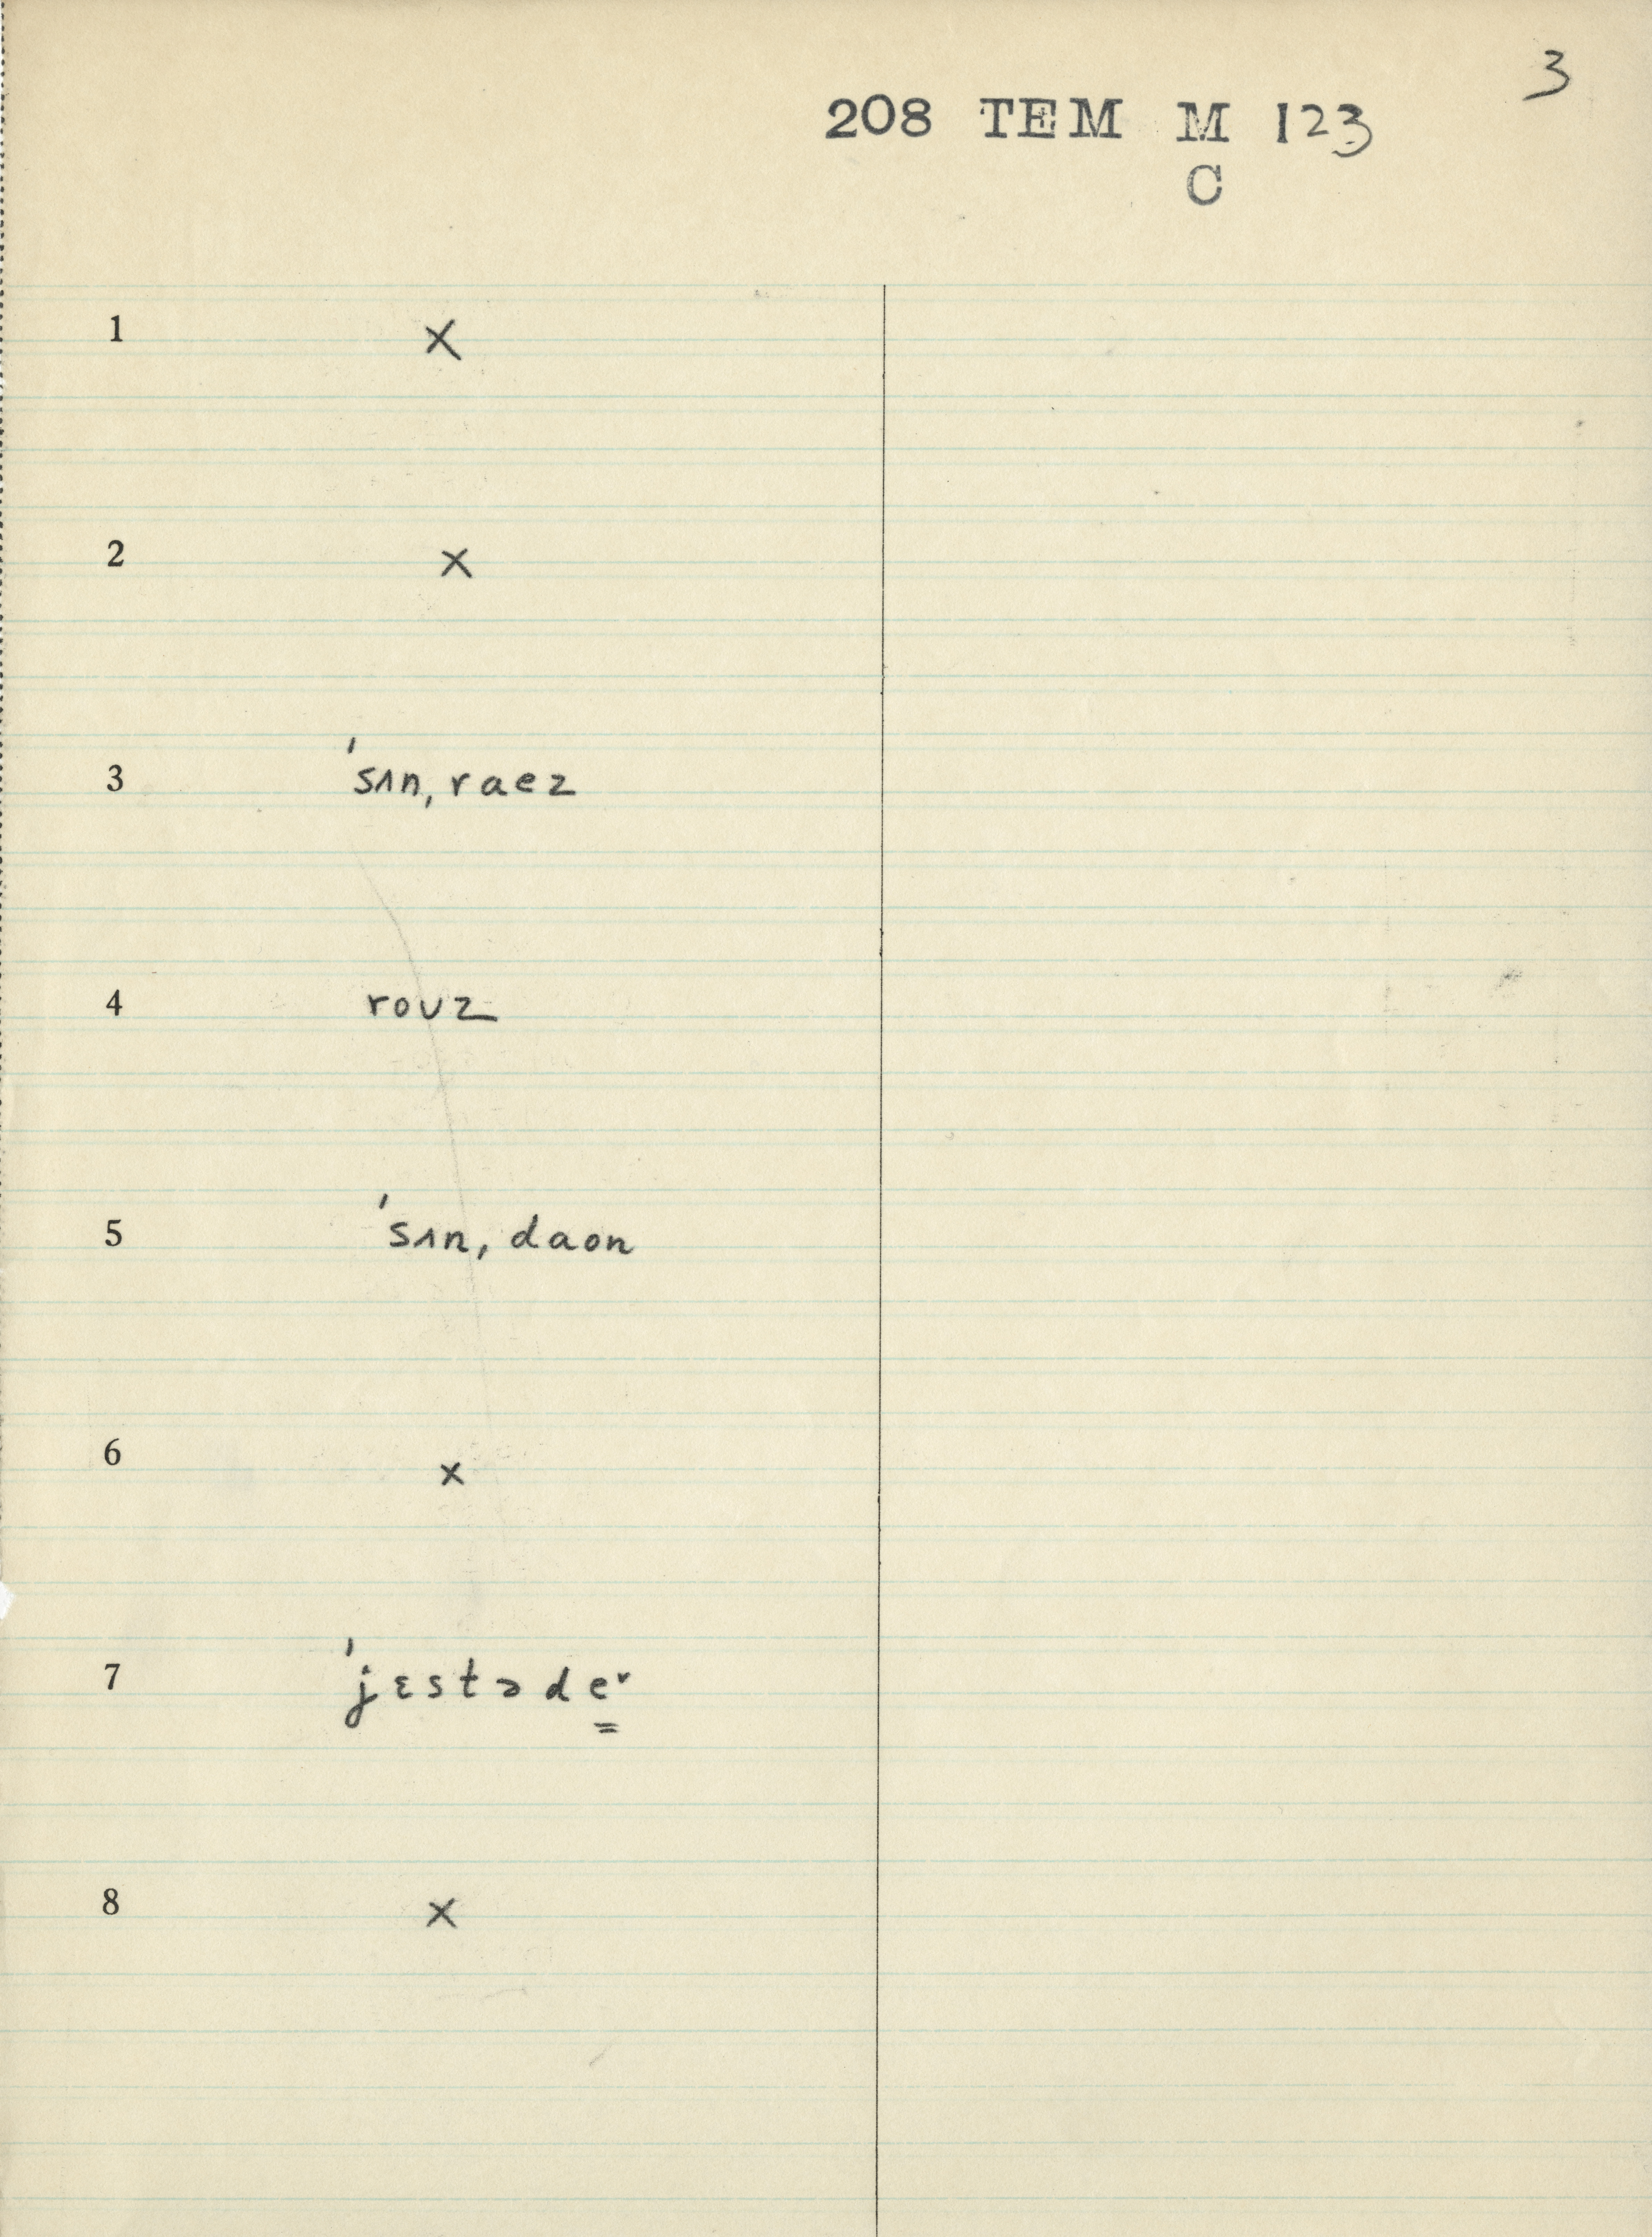 3
208 TEM M 123
C
1 ×
2 ×
3 ˈsʌnˌraez
4 roʊz
5 ˈsʌnˌdaon
6 ×
7 ˈjɛstəde̳˅
8 ×